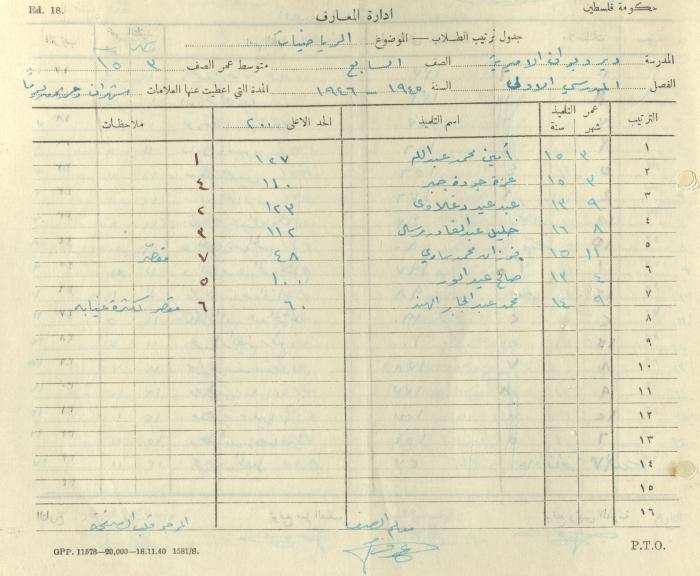 Ed. 18.
حكومة فلسطين
ادارة المعارف
جدول ترتيب الطلاب — الموضوع الرياضيات
المدرسة دير ديوان الاميرية الصف السابع متوسط عمر الصف ٣ ١٥
الفصل المدرسي الاول السنة ١٩٤٥ – ١٩٤٦ المدة التي اعطيت عنها العلامات شهران
الترتيب عمر التلميذ شهر سنة اسم التلميذ الحد الاعلى ٢٠٠ ملاحظات
١ ٣ ١٥ أمين محمد عبدالله ١٢٧ ١
٢ ٣ ١٥ عزة جودة جبر ١١٠ ٤
٣ ٩ ١٣ عبد عيد ١٢٣ ٢
٤ ٨ ١٦ خليل عبدالقادر ١١٢ ٣
٥ ١١ ١٥ فوزان محمد ٤٨ ٧ مقصّر
٦ ٤ ١٣ صالح ١٠٠ ٥
٧ ٩ ١٤ محمد عبد الجابر ٦٠ ٦ مقصر لكثرة غيابه
٨
٩
١٠
١١
١٢
١٣
١٤
١٥
١٦
معلم الصف
الرجاء قلب الصفحة
GPP. 11578—20,000—18.11.40 1581/S.
P.T.O.